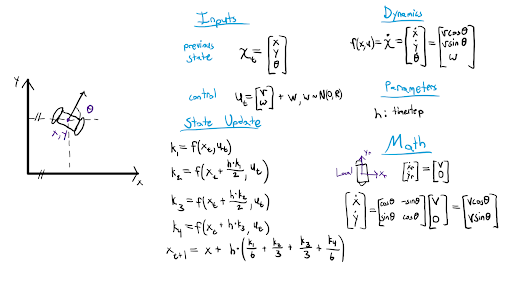 Inputs
previous state
x_t = [x y θ]
control
u_t = [v w] + w, w ~ N(0, R)
State Update
k_1 = f(x_t, u_t)
k_2 = f(x_t + h·k_1/2, u_t)
k_3 = f(x_t + h·k_2/2, u_t)
k_4 = f(x_t + h·k_3, u_t)
x_{t+1} = x + h·(k_1/6 + k_2/3 + k_3/3 + k_4/6)
Dynamics
f(x,u) = ẋ = [ẋ ẏ θ̇] = [vcosθ vsinθ w]
Parameters
h: timestep
Math
Local
y_r
x_r
[ẋ_r ẏ_r] = [v 0]
[ẋ ẏ] = [cosθ -sinθ sinθ cosθ] [v 0] = [vcosθ vsinθ]
y
θ
x, y
x